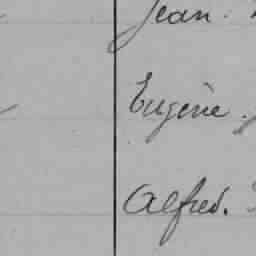 Jean.
Eugène.
Alfred.